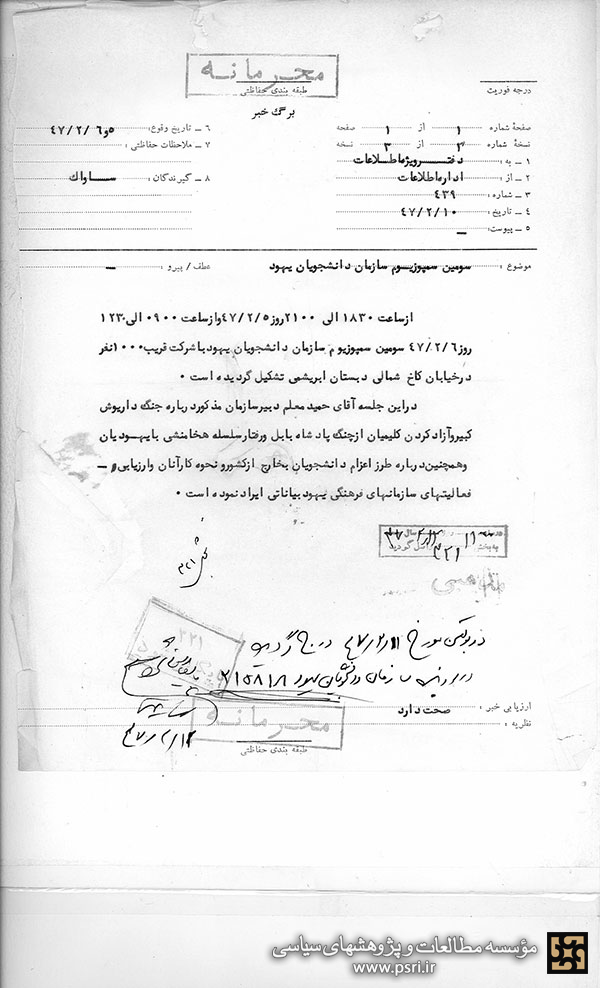 محرمانه
طبقه بندی حفاظتی
درجه فوریت
برگ خبر
صفحهٔ شماره ۱ از ۱ صفحه
نسخهٔ شماره ۳ از ۳ نسخه
۱ ـ به : دفتر ویژه اطلاعات
۲ ـ از : اداره اطلاعات
۳ ـ شماره : ۴۳۹
۴ ـ تاریخ : ۴۷/۲/۱۰
۵ ـ پیوست : ـ
۶ ـ تاریخ وقوع : ۵و۴۷/۲/۶
۷ ـ ملاحظات حفاظتی :
۸ ـ گیرندگان : ساواک
موضوع : سومین سمپوزیوم سازمان دانشجویان یهود عطف / پیرو : ـ
ازساعت ۱۸۳۰ الی ۲۱۰۰ روز ۴۷/۲/۵ وازساعت ۰۹۰۰ الی ۱۲۳۰
روز ۴۷/۲/۶ سومین سمپوزیوم سازمان دانشجویان یهود با شرکت قریب ۱۰۰۰ نفر
درخیابان کاخ شمالی دبستان ابریشمی تشکیل گردیده است ۰
دراین جلسه آقای حمید معلم دبیرسازمان مذکور درباره جنگ داریوش
کبیر وآزاد کردن کلیمیان ازچنگ پادشاه بابل ورفتار سلسله هخامنشی با یهودیان
وهمچنین درباره طرز اعزام دانشجویان بخارج ازکشور و نحوه کارآنان وارزیابی ـ
فعالیتهای سازمانهای فرهنگی یهود بیاناتی ایراد نموده است ۰
بخش ۳۲۱
۳۲۱
در بولتن مورخ ۴۷/۲/۱۱ درج گردید
سازمان دانشجویان یهود ۳۱۵۸۱۸
۴۷/۲/۱۲
ارزیابی خبر : صحت دارد
نظریه :
محرمانه
طبقه بندی حفاظتی
مؤسسه مطالعات و پژوهشهای سیاسی
www.psri.ir